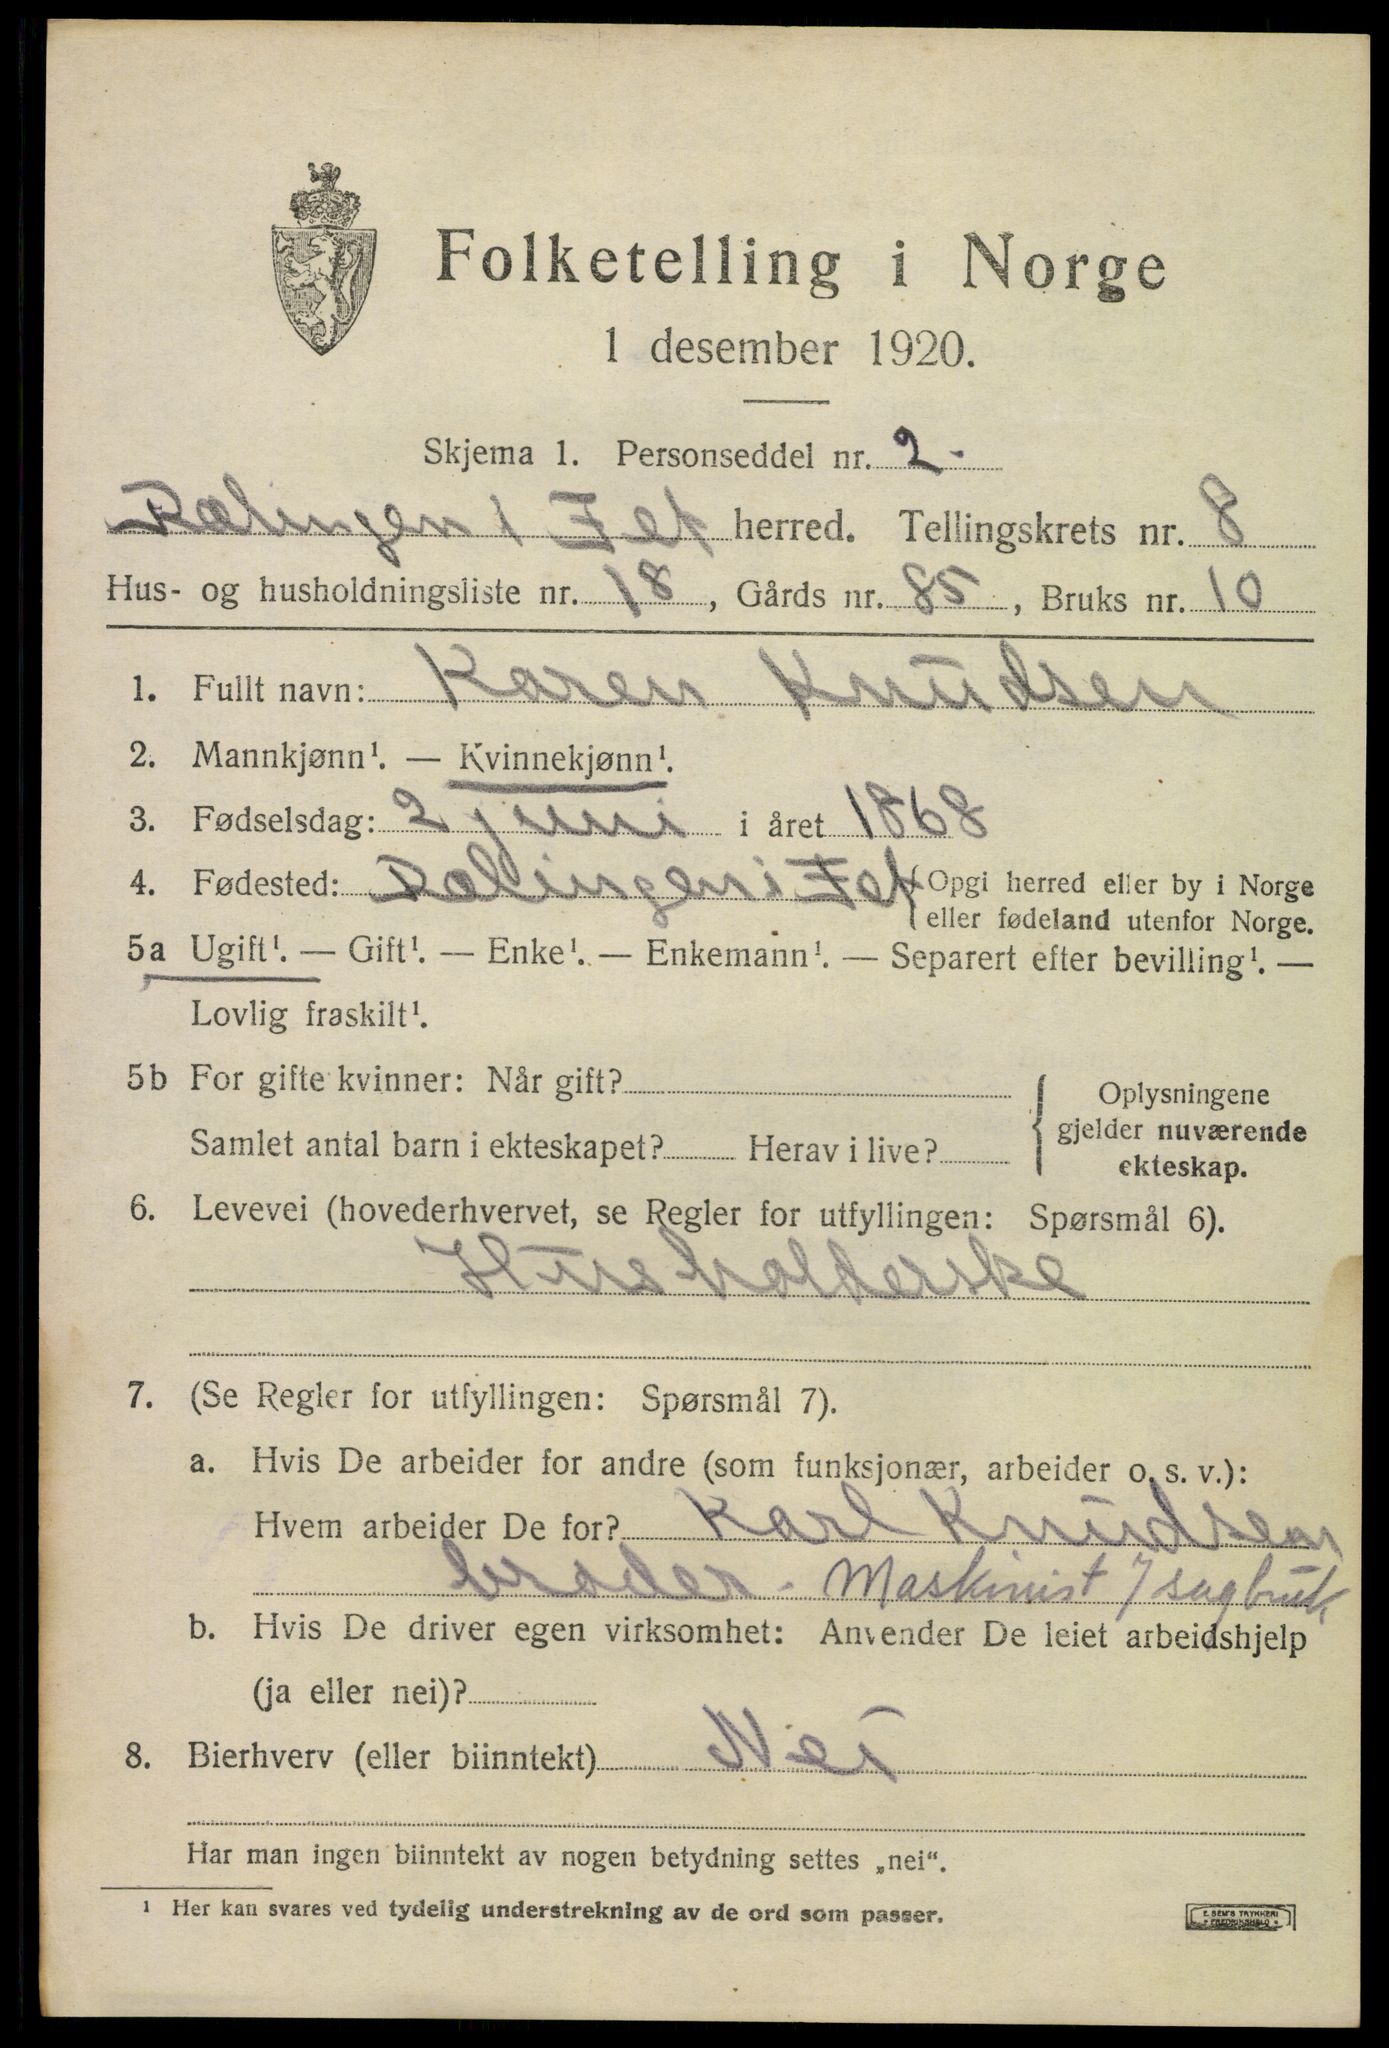 Folketelling i Norge
1 desember 1920.
Skjema 1. Personseddel nr. 2.
Rælingen i Fet herred. Tellingskrets nr. 8
Hus- og husholdningsliste nr. 18, Gårds nr. 85, Bruks nr. 10
1. Fullt navn: Karen Knudsen
2. Mannkjønn¹. — Kvinnekjønn¹.
3. Fødselsdag: 2 juni i året 1868
4. Fødested: Rælingen i Fet { Opgi herred eller by i Norge
eller fødeland utenfor Norge.
5a Ugift¹. — Gift¹. — Enke¹. — Enkemann¹. — Separert efter bevilling¹. —
Lovlig fraskilt¹.
5b For gifte kvinner: Når gift?
Samlet antal barn i ekteskapet? Herav i live?
Oplysningene
gjelder nuværende
ekteskap.
6. Levevei (hovederhvervet, se Regler for utfyllingen: Spørsmål 6).
Husholderske
7. (Se Regler for utfyllingen: Spørsmål 7).
a. Hvis De arbeider for andre (som funksjonær, arbeider o. s. v.):
Hvem arbeider De for? Karl Knudsen
broder. Maskinist / sagbruk
b. Hvis De driver egen virksomhet: Anvender De leiet arbeidshjelp
(ja eller nei)?
8. Bierhverv (eller biinntekt) Nei
Har man ingen biinntekt av nogen betydning settes „nei“.
¹ Her kan svares ved tydelig understrekning av de ord som passer.
E. SEM'S TRYKKERI
• FREDRIKSHALD •